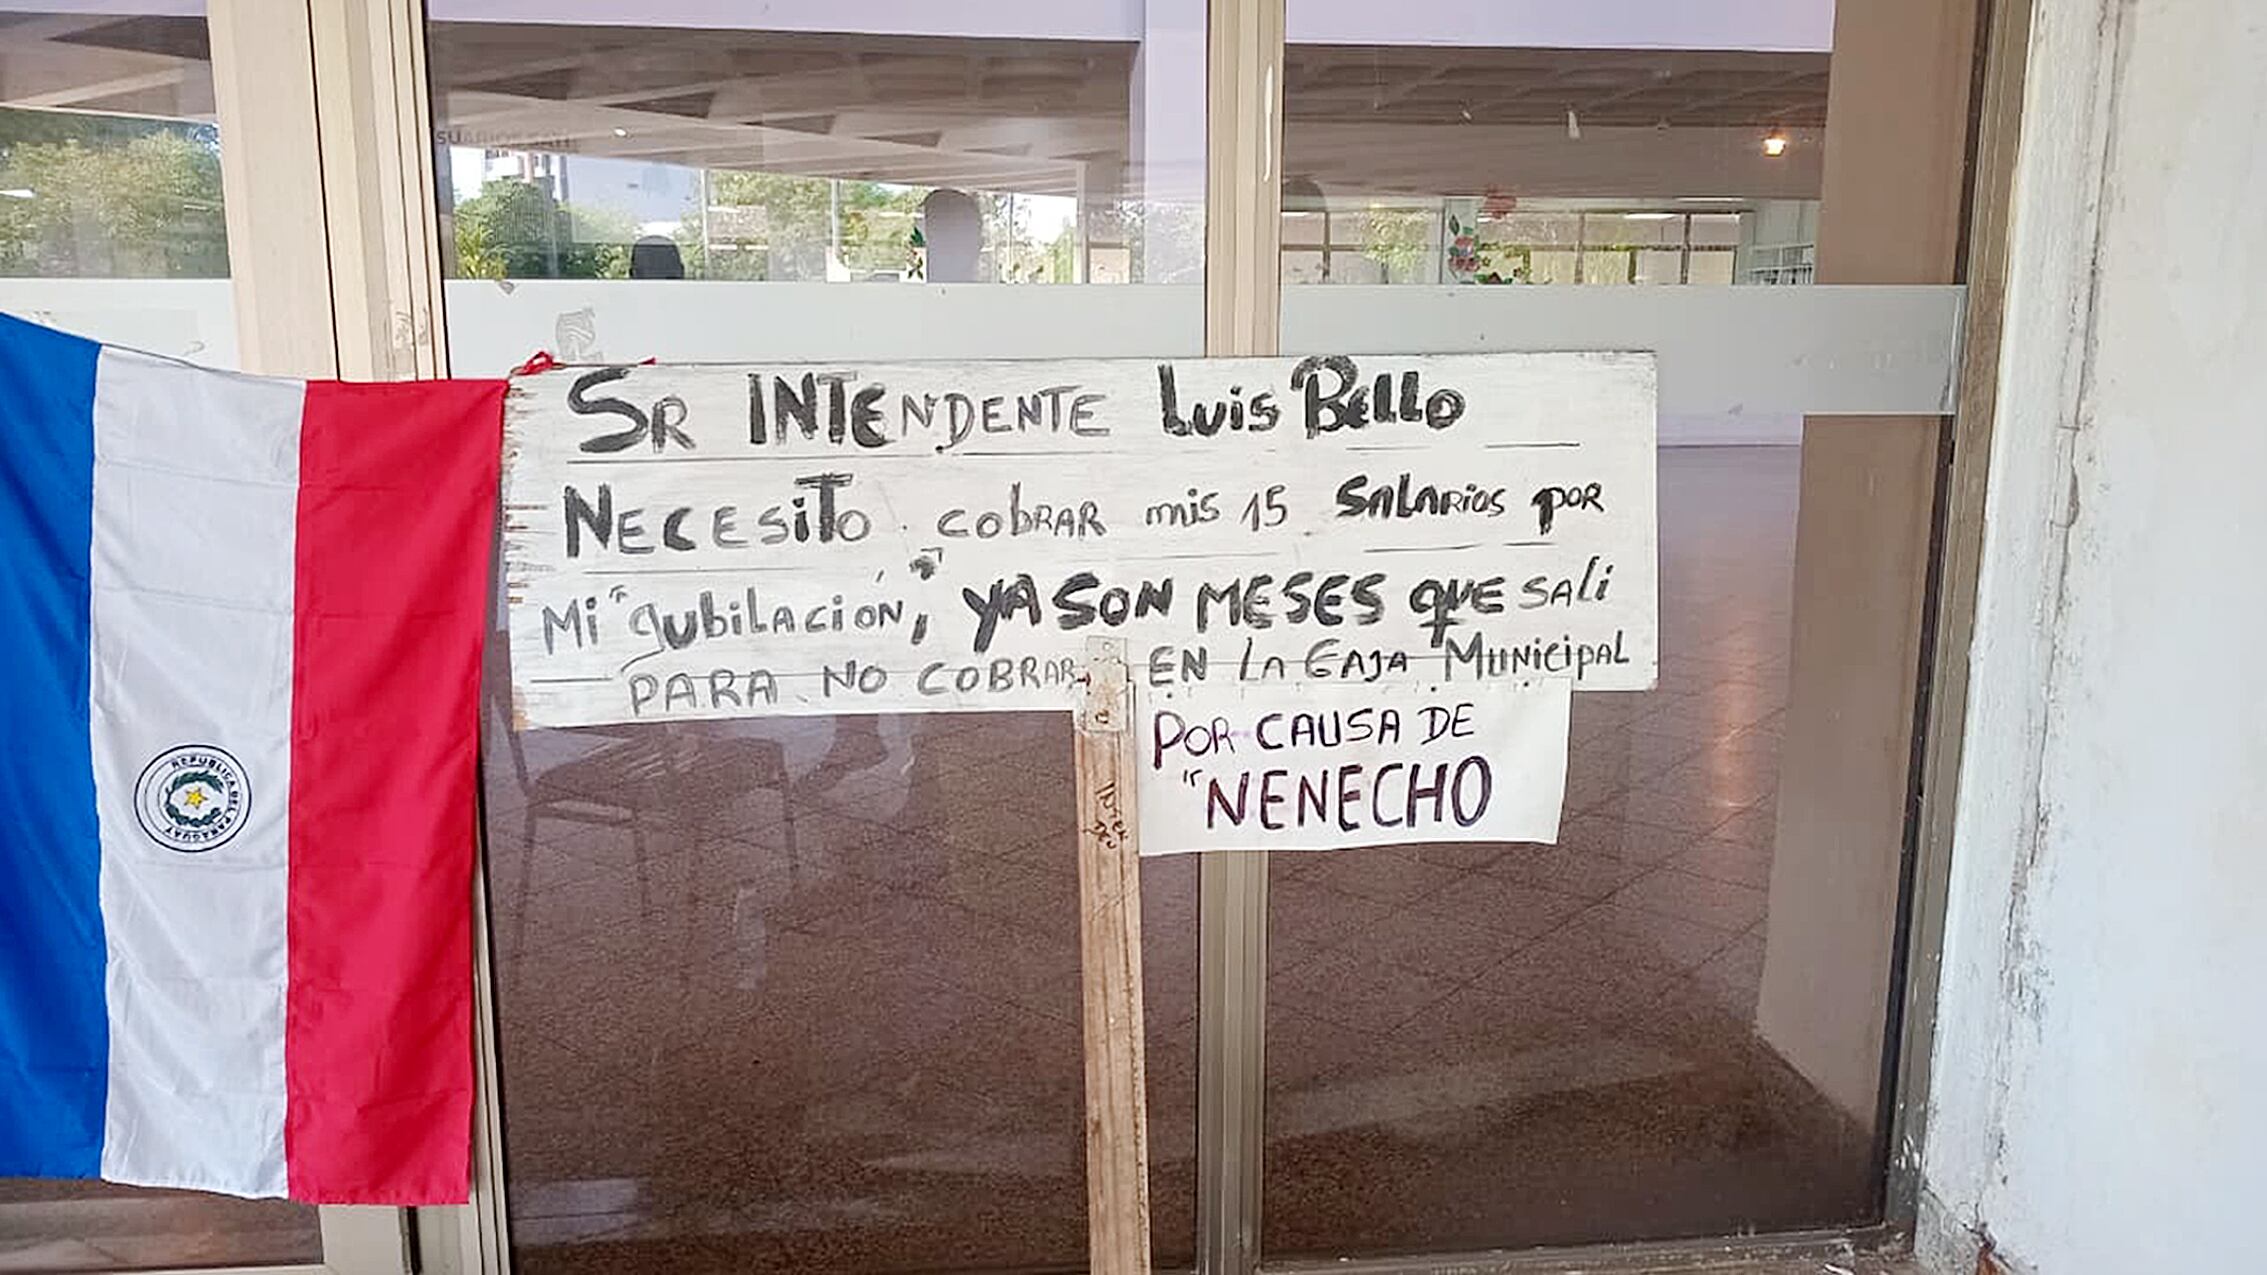 SR INTENDENTE LUIS BELLO
NECESITO COBRAR MIS 15 SALARIOS POR
MI "JUBILACIÓN," YA SON MESES QUE SALI
PARA NO COBRAR EN LA CAJA MUNICIPAL
POR CAUSA DE
"NENECHO
REPUBLICA DEL PARAGUAY